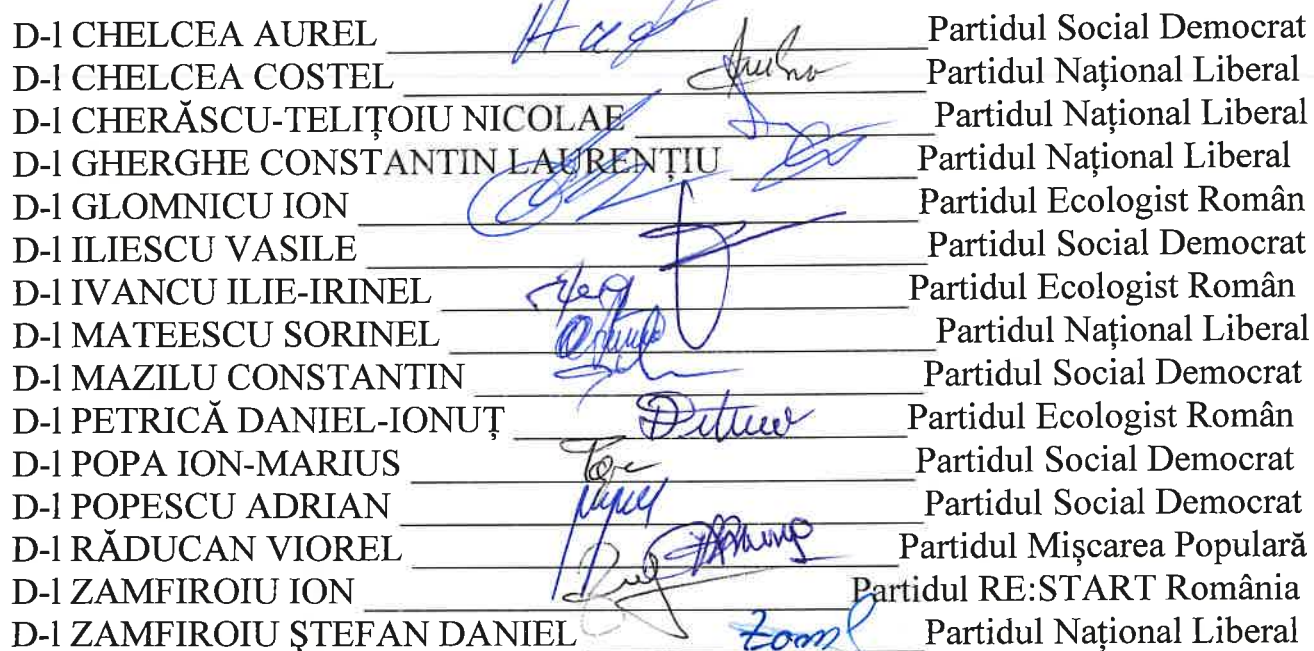 D-l CHELCEA AUREL Partidul Social Democrat
D-l CHELCEA COSTEL Partidul Național Liberal
D-l CHERĂSCU-TELIȚOIU NICOLAE Partidul Național Liberal
D-l GHERGHE CONSTANTIN LAURENȚIU Partidul Național Liberal
D-l GLOMNICU ION Partidul Ecologist Român
D-l ILIESCU VASILE Partidul Social Democrat
D-l IVANCU ILIE-IRINEL Partidul Ecologist Român
D-l MATEESCU SORINEL Partidul Național Liberal
D-l MAZILU CONSTANTIN Partidul Social Democrat
D-l PETRICĂ DANIEL-IONUȚ Partidul Ecologist Român
D-l POPA ION-MARIUS Partidul Social Democrat
D-l POPESCU ADRIAN Partidul Social Democrat
D-l RĂDUCAN VIOREL Partidul Mișcarea Populară
D-l ZAMFIROIU ION Partidul RE:START România
D-l ZAMFIROIU ȘTEFAN DANIEL Partidul Național Liberal